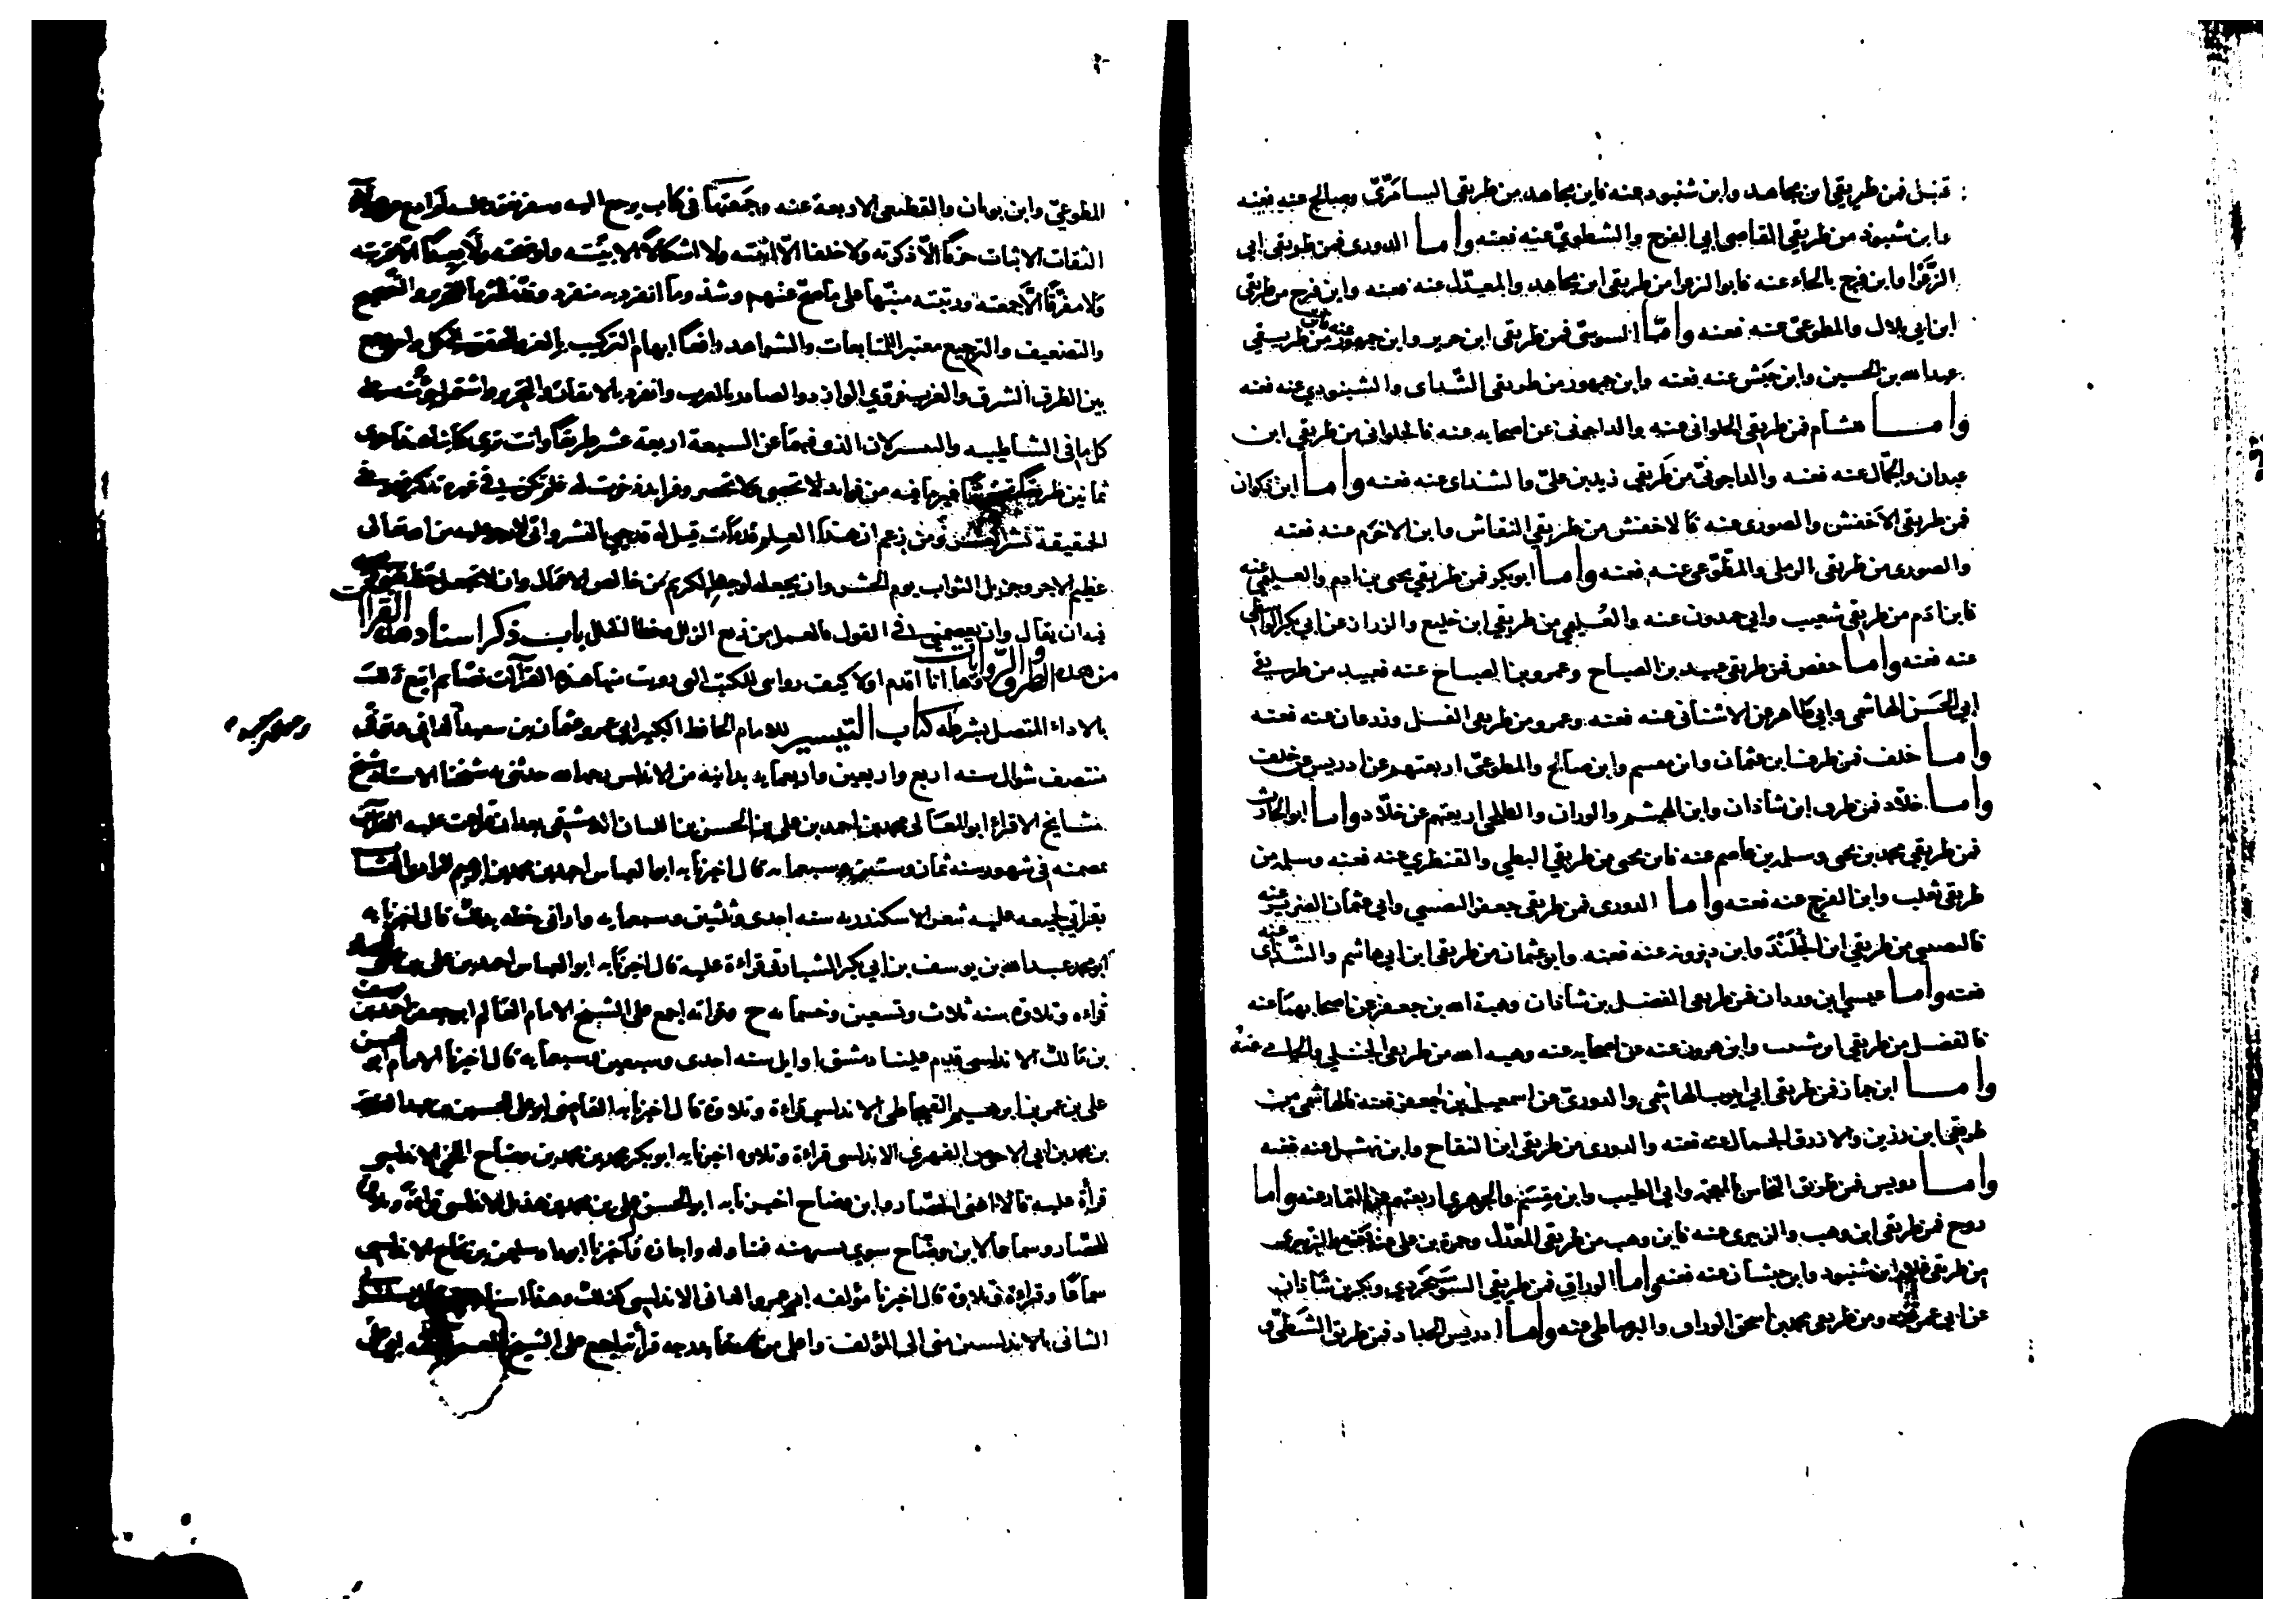 قنبل فمن طريقي ابن مجاهد وابن شنبوذ عنه فابن مجاهد من طريقي السامَرّيّ وصالح عنه فعنه
وابن شنبوذ من طريقي القاضي ابي الفرج والشطويّ عنه فعنه واما الدورى فمن طريقي ابي
الزَّعْرا وابن فرح بالحاء عنه فابو الزعرا من طريقي ابن مجاهد والمعدّل عنه فعنه وابن فرح من طريقي
ابن ابي بلال والمطوعيّ عنه فعنه وامّا السوسيّ فمن طريقي ابن جرير وابن جمهور عنه فابن جرير من طريقي
عبد الله بن الحسين وابن حَبَش عنه فعنه وابن جمهور من طريقي الشّذاى والشنبوذي عنه فعنه
واما هشام فمن طريقي الحلوانى عنه والداجونى عن اصحابه عنه فالحلوانى من طريقي ابن
عبدان والجمّال عنه فعنه والداجونيّ من طَريقي زيد بن عليّ والشذاى عنه فعنه واما ابن ذكوان
فمن طريقي الاخفش والصورى عنه فالاخفش من طريقي النقاش وابن الاخرَم عنه فعنه
والصورى من طريقي الرملى والمطّوّعى عنه فعنه واما ابو بكر فمن طريقي يحيى بن ادم والعليمي عنه
فابن ادَم من طريقي شعيب وابي حمدون عنه والعُليمي من طريقي ابن خليع والرزاز عن ابي بكر الواسطي
عنه فعنه واما حفص فمن طريقي عبيد بن الصباح وعمرو بن الصباح عنه فعبيد من طريقي
ابي الحَسَن الهاشمى وابي طاهر عن الاشنانى عنه فعنه وعمرو من طريقي الفيل وزرعان عنه فعنه
واما خلف فمن طرق ابن عثمان وابن مقسم وابن صالح والمطوعيّ اربعتهم عن ادريس عن خلف
واما خلّاد فمن طرق ابن شاذان وابن الهيثم والوزان والطلحى اربعتهم عن خلّاد واما ابو الحارث
فمن طريقي محمد بن يحيى وسلمة بن عاصم عنه فابن يحيى من طريقي البطي والقنطري عنه فعنه وسلمة من
طريقي ثعلب وابن الفرج عنه فعنه واما الدورى فمن طريقي جعفر النصيبي وابي عثمان الضرير عنه
فالنصيبي من طريقي ابن الجُلَنْدَا وابن ديزويه عنه فعنه وابو عثمان من طريقي ابن ابي هاشم والشّذاى عنه
فعنه واما عيسى ابن وردان فمن طريقي الفضل بن شاذان وهبة الله بن جعفر عن اصحابهما عنه
فالفضل من طريقي ابن شبيب وابن هرون عنه عن اصحابه عنه وهبه الله من طريقي الحنبلي والحمامي عنهُ
واما ابن جماز فمن طريقي ابي ايوب الهاشمي والدوريّ عن اسمعيل بن جعفر عنه فالهاشمى من
طريقي ابن رزين والازرق الجمال عنه فعنه والدورى من طريقي ابن النفاح وابن نهشل عنه فعنه
واما رويس فمن طرق النخاس بالمعجمه وابي الطيب وابن مِقسَم والجوهرى اربعتهم عن التمار عنه واما
روح فمن طريقي ابن وهب والزبيرى عنه فابن وهب من طريقي المعَدّل وحمزة بن على عنه فعنه والزبيرى
من طريقي غلام ابن شنبوذ وابن حبشان عنه فعنه واما الوراق فمن طريقي السّوسَنجردي وبكر بن شاذان
عن ابن ابي عمر عنه ومن طريقي محمد بن اسحق الوراق والبرصاطى عنه واما ادريس الحداد فمن طرق الشطّيّ و
المطوعيّ وابن بويان والقطيعى الاربعة عنه وجَمَعتهَا في كتاب يرجع اليه وسفر يعتمد عليه لم ادع عن هؤلاء
الثقات الاثبات حرفاً الّا ذكرته ولا خلفا الّا اثبته ولا اشكالاً الا بيّنته واوضحته ولا بعيداً الّا قربته
ولا مفرّقاً الّا جمعته ورتبته منبّها على ما صحّ عنهم وشذ وما انفرد به منفرد وفذ ملتزما للتحرير والتصحيح
والتضعيف والترجيح معتبر المتابعات والشواهد رافعاً ابهام التركيب بالعزو المحقق الى كل واحد جمع
بين الطرق الشرق والغرب فروّي الوارد والصادر بالغرب وانفرد بالاتقان والتحرير واشتمل جُزء منه على
كل ما في الشاطبيه والتيسير لان الذى فيهما عن السبعة اربعة عشر طريقاً وانت ترى كتابنا هذا حوى
ثمانين طريقاً تحقيقاً غير ما فيه من فوايد لا تحصى ولا تحصر وفرايد دخرت له فلم تكن في غيره تذكر فهو في
الحقيقة نشر العشر ومن زعم ان هذا العلم قد مات قيل له قد حيي بالنشر وانى لارجو عليه من الله تعالى
عظيم الاجر وجزيل الثواب يوم الحشر وان يجعله لوجهه الكريم من خالص الاعمال وان لا يجعل حظ تعبي
فيه ان يقال وان يعصمني في القول والعمل من زيغ الزلل وخطا الخطل باب ذكر اسناد هذه القراآت
من هذه الطرق والروايات وها انا اقدم اولا كيف روايتى للكتب التى رويت منها هذه القراآت نصّا ثم اتبع ذلك
بالاداء المتصل بشرطه كتاب التيسير للامام الحافظ الكبير ابي عمرو عثمان بن سعيد الدانى وتوفى
منتصف شوال سنه اربع واربعين واربعمايه بدانيه من الاندلس رحمه الله حدثنى به شيخنا الاستاذ شيخ
مشايخ الاقراء ابو المعَالى محمد بن احمد بن على بن الحسن بن اللبان الدمشقى بعد ان قرات عليه القرآن
بمضمنه في شهور سنه ثمان وستين وسبعمايه قال اخبرنا به ابو العباس احمد بن محمد بن ابرهيم المرادى العشاب
بقراتي لجميعه عليه بثغر الاسكندريه سنه احدى وثلثين وسبعمايه وارانى خطه بذلك قال اخبرنا به
ابو محمد عبد الله بن يوسف بن ابي بكر الشبارتى قراءة عليه قال اخبرنا به ابو العباس احمد بن على بن يحيى
قراءه وتلاوه سنه ثلاث وتسعين وخسمايه ح وقراته اجمع على الشيخ الامام العَالم ابو جعفر احمد بن يوسف
بن مَالك الاندلسى قدم علينا دمشق اوايل سنه احدى وسبعين وسبعمايه قال اخبرنا الامام ابو الحسن
على بن عمر بن ابرهيم القيجاطى الاندلسى قراءة وتلاوة قال اخبرنا به القاضى ابو على الحسين بن عبد العزيز
بن محمد بن ابي الاحوص الفهري الاندلسى قراءة وتلاوه اخبرنا به ابو بكر محمد بن محمد بن وضاح اللخمى الاندلسى
قرأة عليه قالا اعنى الحصار وابن وضاح اخبرنا به ابو الحسن على بن محمد بن هذيل الاندلسى قراءةً وتلاوة
للحصار وسماعا لابن وضّاح سوي يسير منه فمناوله واجازه قال اخبرنا ابو داود سليمن بن نجاح الاندلسى
سماعًا وقراءة وتلاوة قال اخبرنا مؤلفه ابو عمرو الدانى الاندلسى كذلك وهذا اسناد
الثانى بالاندلسيين منى الى المؤلف واعلى من هذا بدرجه قرأته اجمع على الشيخ ابي على